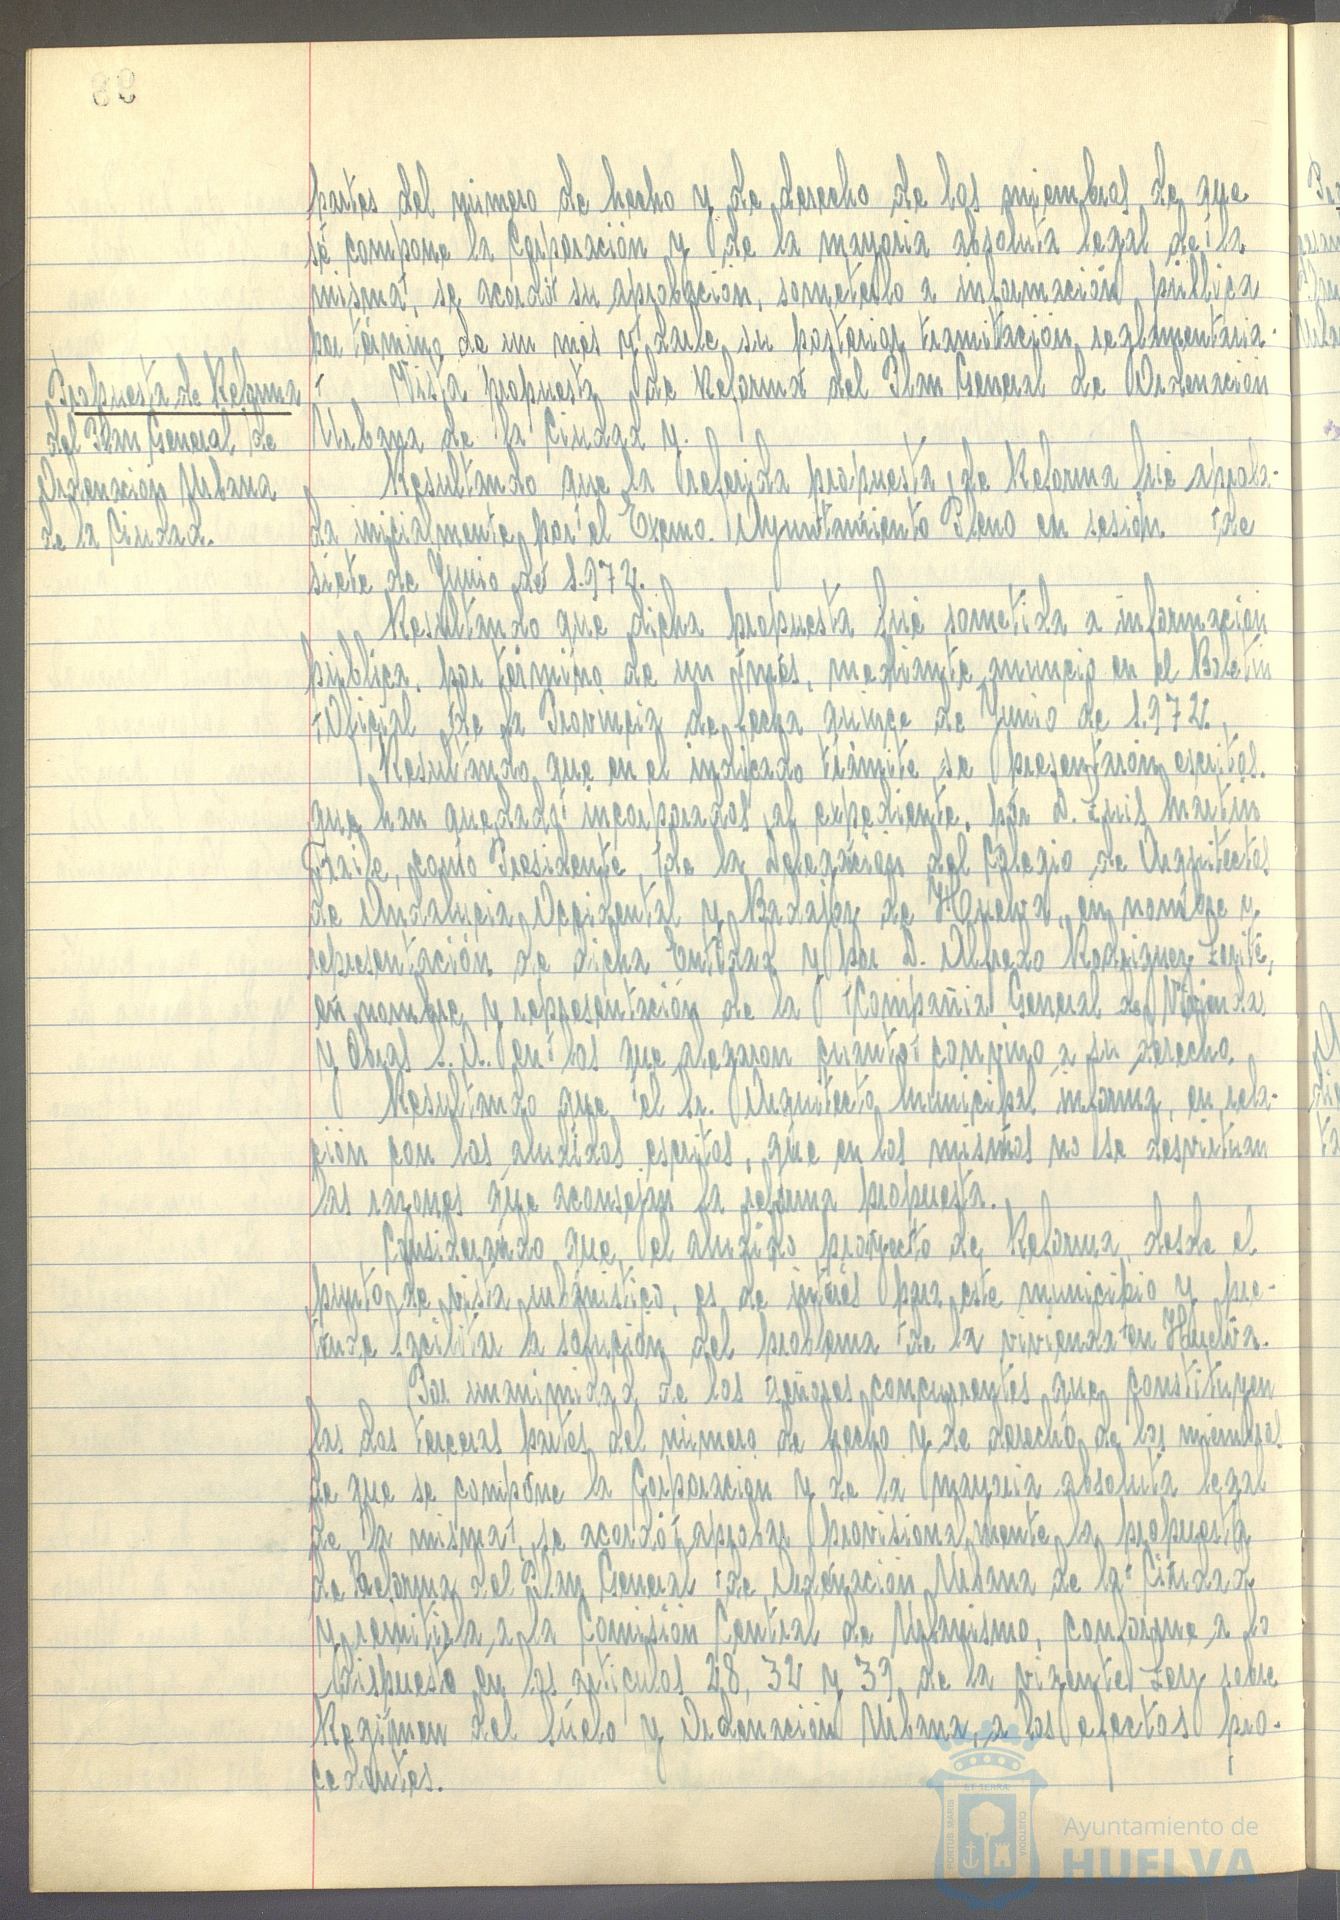 partes del número de hecho y de derecho de los miembros de que
se compone la Corporación y de la mayoria absoluta legal de la
misma, se acordó su aprobación, someterlo a información pública
por término de un mes y darle su posterior tramitación reglamentaria.
Propuesta de Reforma
del Plan General de
Ordenación Urbana
de la Ciudad.
Vista propuesta de Reforma del Plan General de Ordenación
Urbana de la Ciudad y.
Resultando que la referida propuesta de Reforma fué aproba-
da inicialmente por el Excmo. Ayuntamiento Pleno en sesión de
siete de Junio de 1.972.
Resultando que dicha propuesta fué sometida a información
pública, por término de un mes, mediante anuncio en el Boletin
Oficial de la Provincia de fecha quince de Junio de 1.972.
Resultando que en el indicado trámite se presentaron escritos.
que han quedado incorporados al expediente, por D. Luis Martin
Fraile, como Presidente de la Delegación del Colegio de Arquitectos
de Andalucia Occidental y Badajoz de Huelva, en nombre y
representación de dicha Entidad y por D. Alfredo Rodriguez
en nombre y representación de la Compañia General de Viviendas
y Obras S.A. en los que alegaron cuanto convino a su derecho.
Resultando que el Sr. Arquitecto Municipal informa, en rela-
ción con los aludidos escritos, que en los mismos no se desvirtuan
las razones que aconsejan la reforma propuesta.
Considerando que, el aludido proyecto de Reforma, desde el
punto de vista urbanistico, es de interés para este municipio y pre-
tende facilitar la solución del problema de la vivienda en Huelva.
Por unanimidad de los señores concurrentes que constituyen
las dos terceras partes del número de hecho y de derecho de los miembros
de que se compone la Corporación y de la mayoria absoluta legal
de la misma, se acordó aprobar provisionalmente la propuesta
de Reforma del Plan General de Ordenación Urbana de la Ciudad
y remitirla a la Comisión Central de Urbanismo, conforme a lo
dispuesto en los articulos 28, 32 y 39 de la vigente Ley sobre
Regimen del Suelo y Ordenación Urbana, a los efectos pro-
cedentes.
PORTUS MARIS ET TERRÆ CUSTODIA
Ayuntamiento de
HUELVA